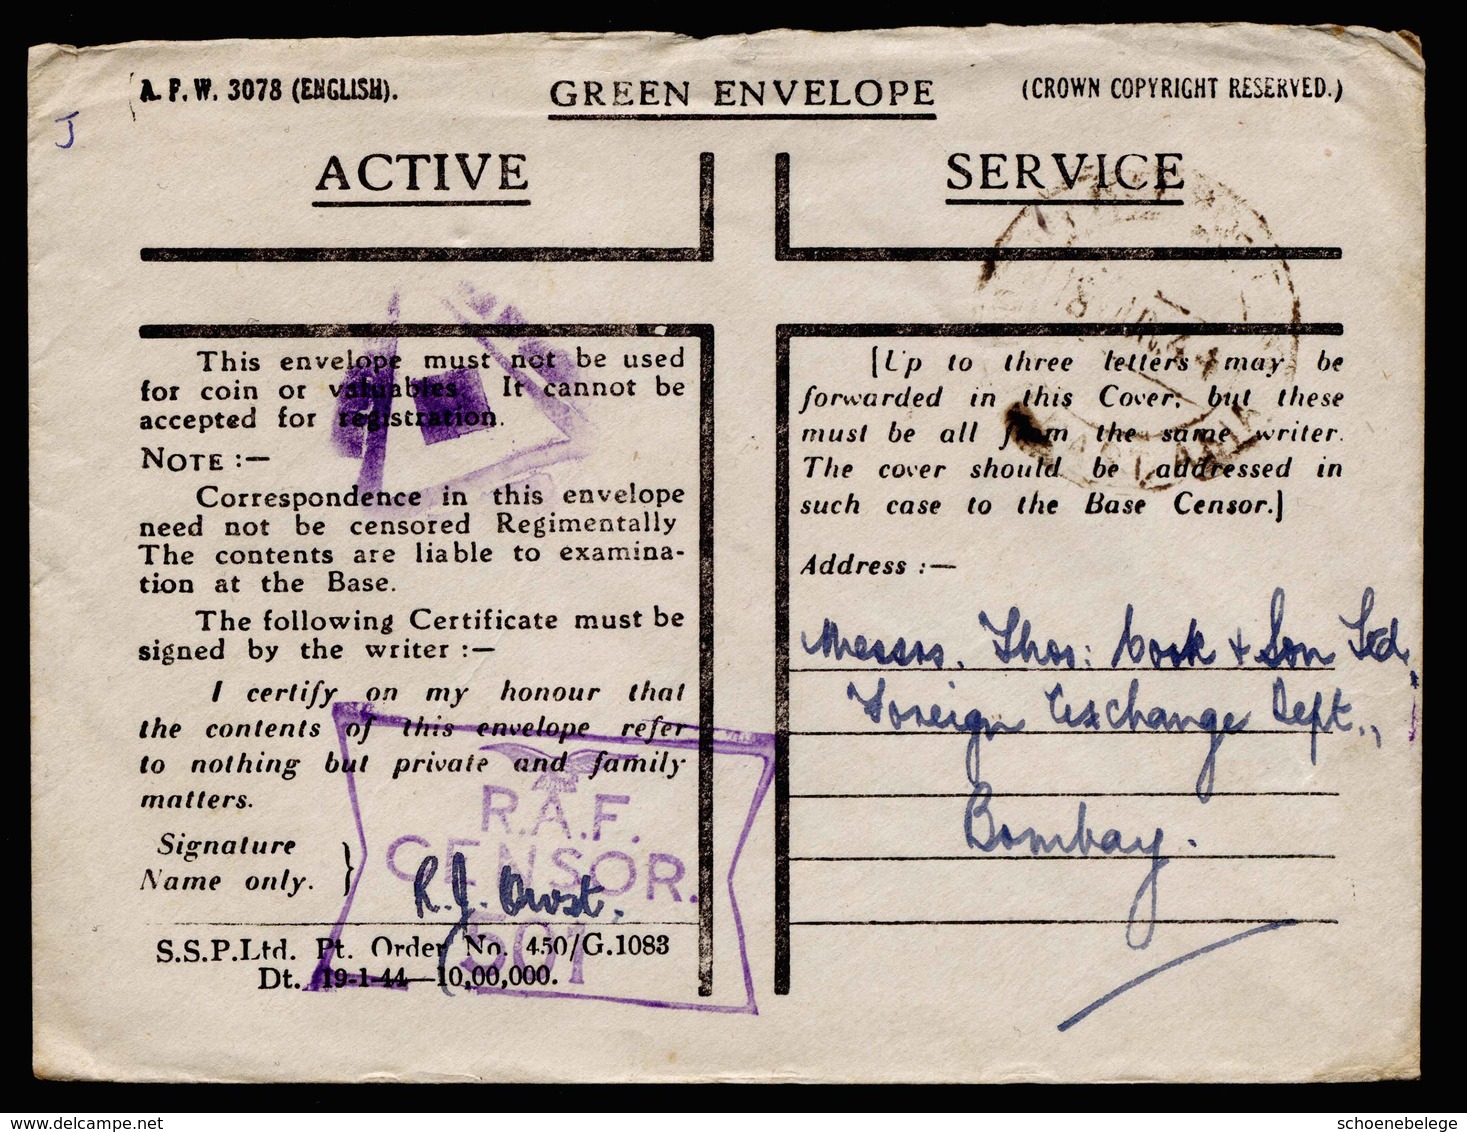 A. F. W. 3078 (ENGLISH).
GREEN ENVELOPE
(CROWN COPYRIGHT RESERVED.)
J
ACTIVE
SERVICE
This envelope must not be used
for coin or valuables. It cannot be
accepted for registration.
NOTE :—
Correspondence in this envelope
need not be censored Regimentally
The contents are liable to examina-
tion at the Base.
The following Certificate must be
signed by the writer :—
I certify on my honour that
the contents of this envelope refer
to nothing but private and family
matters.
Signature
Name only. }
R.A.F.
CENSOR.
501
S.S.P.Ltd. Pt. Order No. 450/G.1083
Dt. 19-1-44—10,00,000.
[Up to three letters may be
forwarded in this Cover; but these
must be all from the same writer.
The cover should be addressed in
such case to the Base Censor.]
Address :—
Messrs. Thos: Cook & Son Ltd.,
Foreign Exchange Dept.,
Bombay.
delcampe.net
schoenebelege